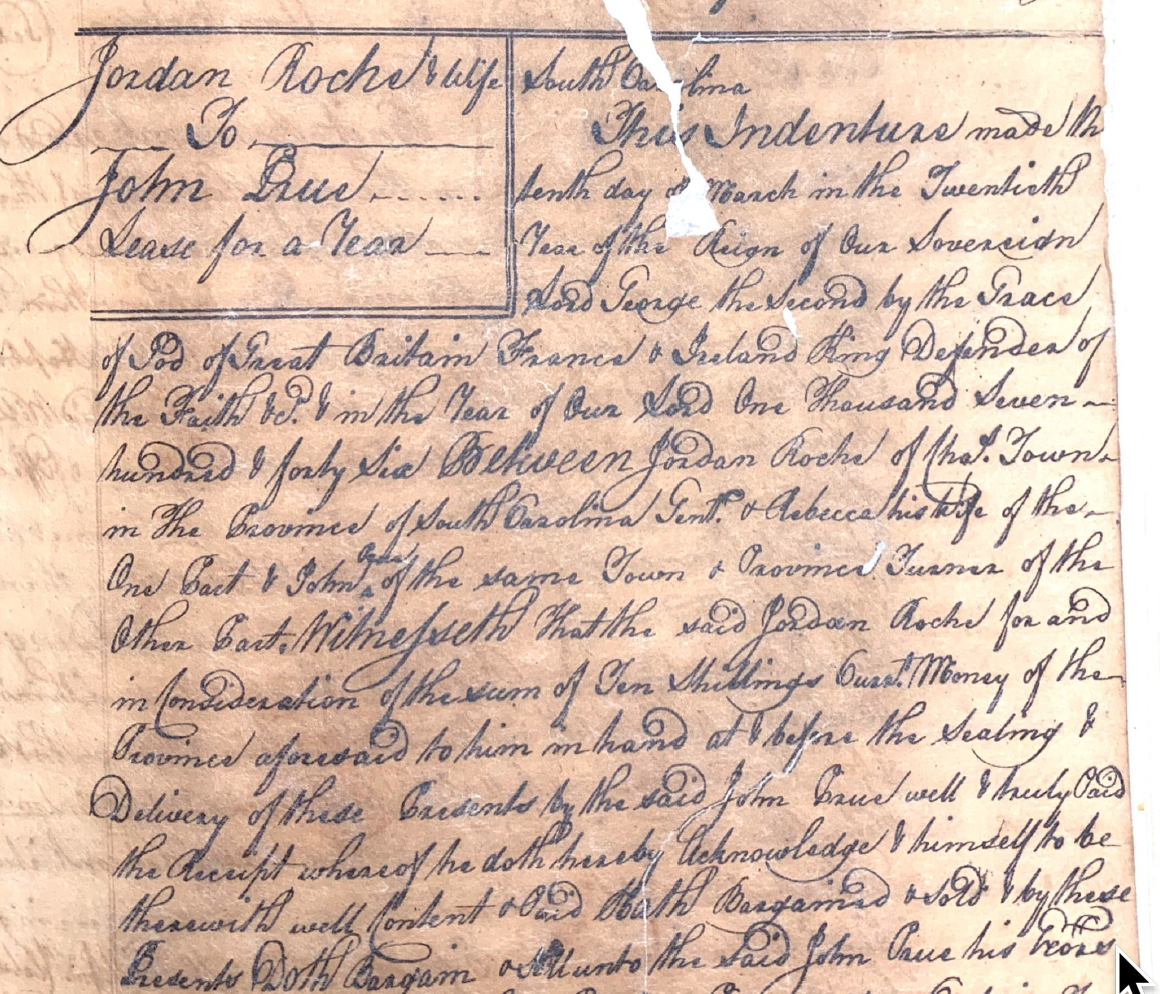 Jordan Roche & Wife
To
John Prue
Lease for a Year
South Carolina
This Indenture made th
tenth day of March in the Twentieth
Year of the Reign of Our Sovereign
Lord George the Second by the Grace
of God of Great Britain France & Ireland King Defender of
the Faith &c. & in the Year of Our Lord One Thousand Seven
hundred & forty Six Between Jordan Roche of Chas. Town
in The Province of South Carolina Gent. & Rebecca his Wife of the
One Part & John Prue of the same Town & Province Turner of the
Other Part. Witnesseth That the said Jordan Roche for and
in Consideration of the sum of Ten Shillings Currt. Money of the
Province aforesaid to him in hand at & before the Sealing &
Delivery of these Presents by the said John Prue well & truly Paid
the Receipt whereof he doth hereby Acknowledge & himself to be
therewith well Content & Paid Hath Bargained & Sold & by these
Presents Doth Bargain & Sell unto the said John Prue his